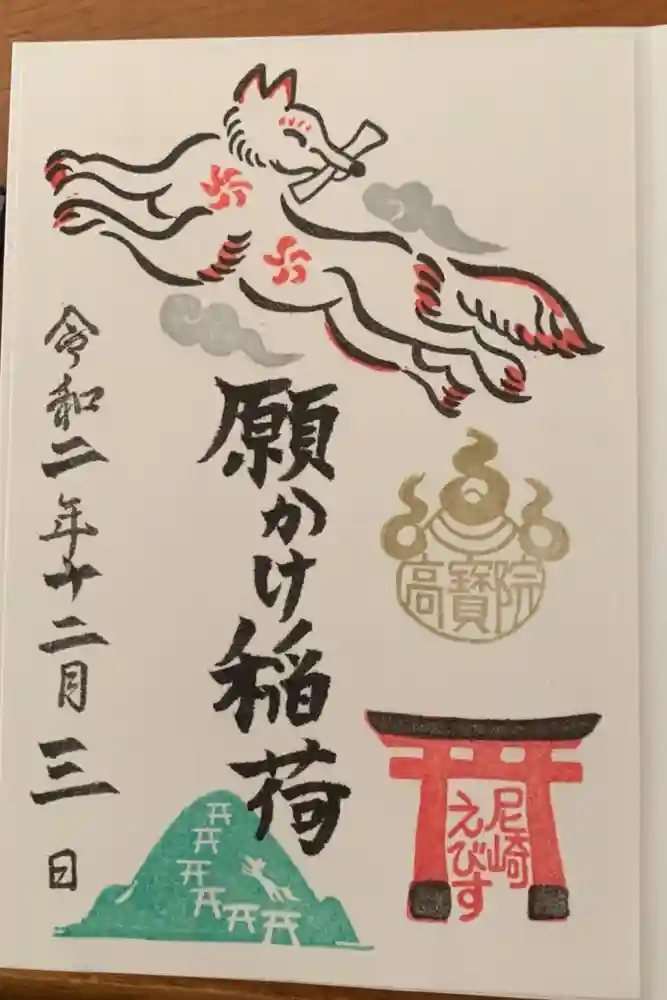 高寳院
尼崎
えびす
願かけ稲荷
令和二年十二月三日